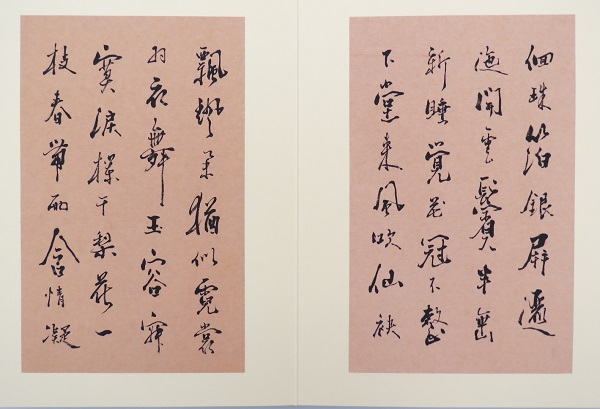 徊珠箔銀屏邐
迤開雲鬢半垂
新睡覺花冠不整
下堂來風吹仙袂
飄颻舉猶似霓裳
羽衣舞玉容寂
寞淚欄干梨花一
枝春帶雨含情凝